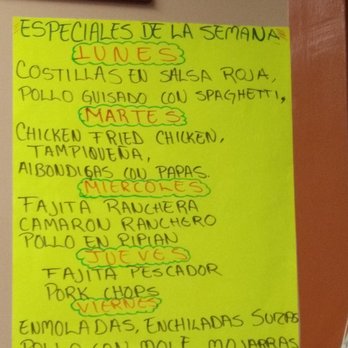 ESPECIALES DE LA SEMANA
LUNES
COSTILLAS EN SALSA ROJA,
POLLO GUISADO CON SPAGHETTI,
MARTES
CHICKEN FRIED CHICKEN,
TAMPIQUEÑA,
AlBONDIGAS CON PAPAS.
MIERCOLES
FAJITA RANCHERA
CAMARON RANCHERO
POLLO EN PIPIAN
JUEVES
FAJITA PESCADOR
PORK CHOPS
VIERNES
ENMOLADAS, ENCHILADAS SUIZAS
POLLO CON MOLE, MOJARRAS